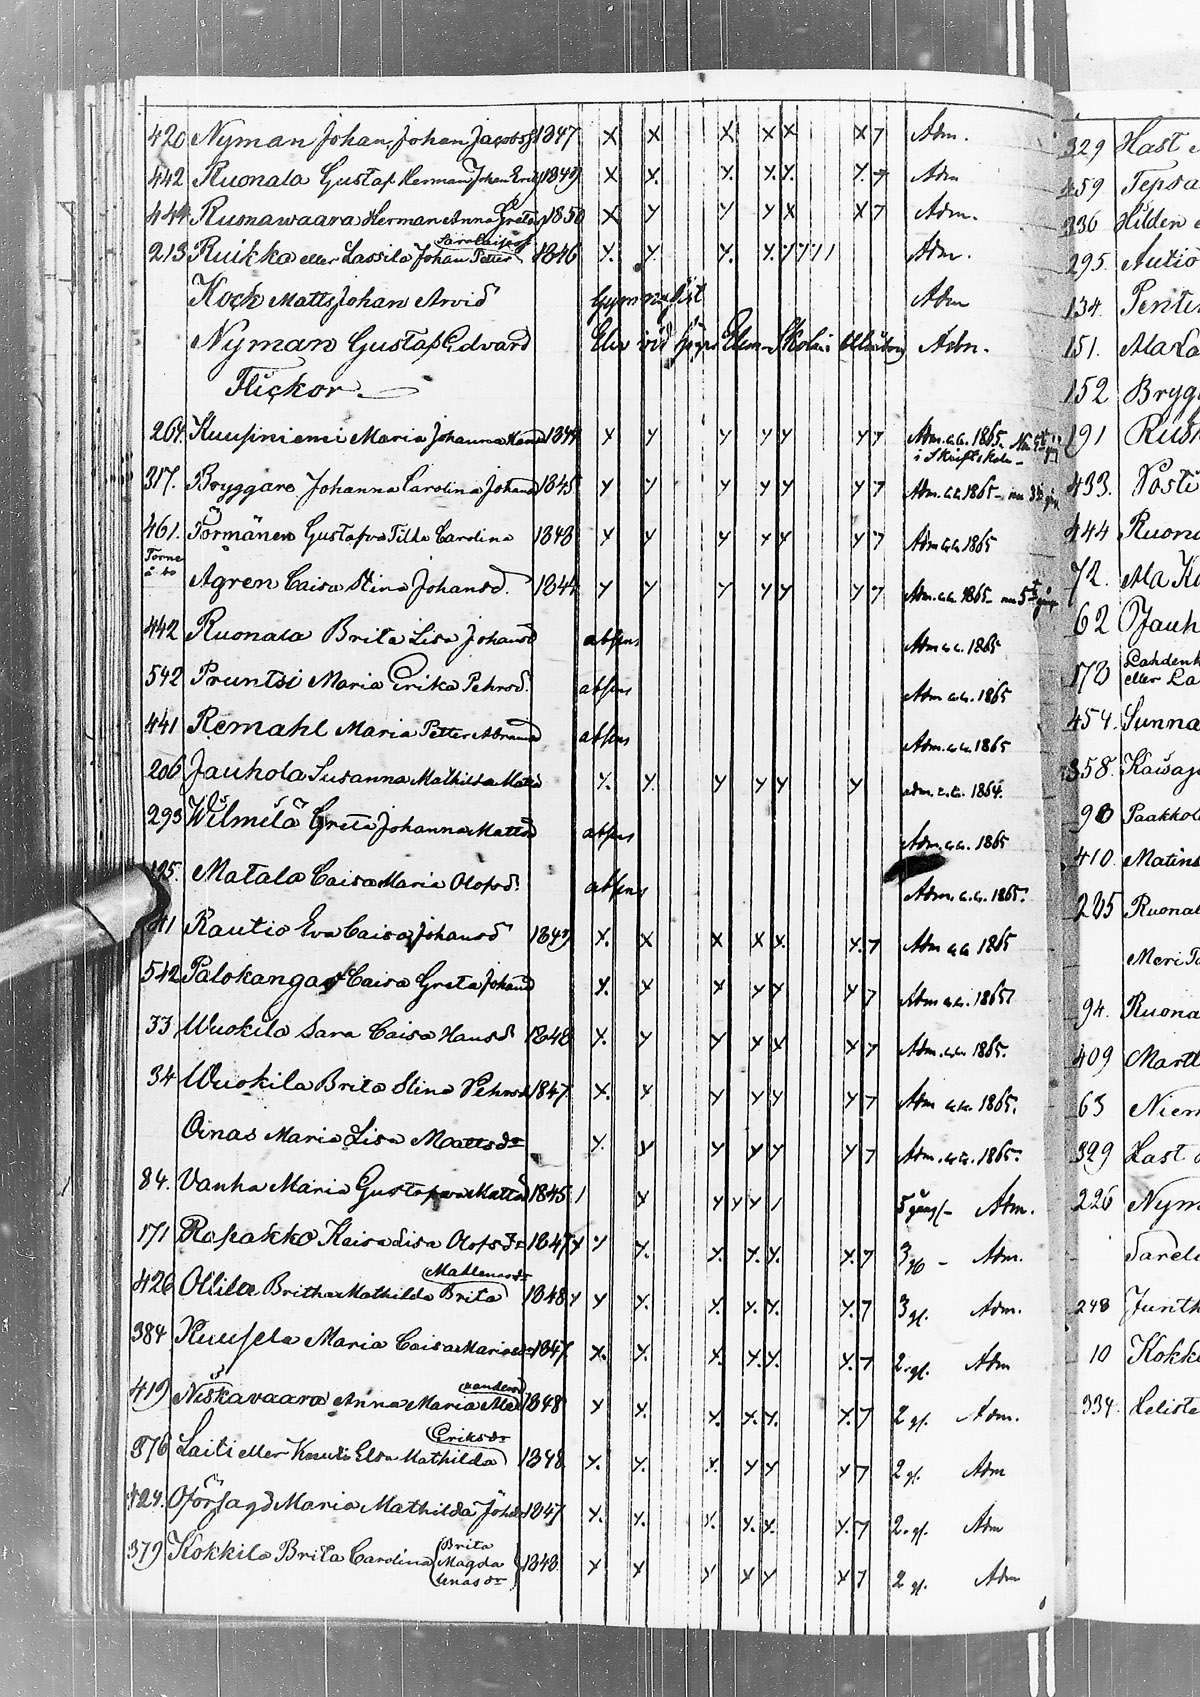 420 Nyman Johan, Johan Jacobss 1847 X X X X X X 7 Adm.
442 Ruonala Gustaf Herman Johan Eriks 1849 X X. Y. Y. Y. Y. 7 Adm
444 Rumawaara Herman Anna Greta 1850 X Y Y Y X X 7 Adm.
213 Ruikka eller Lassila Johan Petter 1846 Y. Y. Y. Y. Y 7 7 1 1 Adm.
Kock Matts Johan Arvid Gymnasist Adm
Nyman Gustaf Edvard Elev vid Elem. Skolan Adm.
Flickor
264. Kuusiniemi Maria Johanna 1844 Y Y Y Y Y Y 7 Adm. a.c. 1865.
i Skriftskola
317. Bryggare Johanna Carolina Johansd 1845 Y Y Y Y Y Y 7 Adm. a.c. 1865
461. Törmänen Gustafva Tilda Carolina 1843 Y Y Y Y Y Y 7 Adm a.c. 1865
Torne
å bo
Ågren Caisa Stina Johansd. 1844 Y Y Y Y Y Y 7 Adm. a.c. 1865
442 Ruonala Brita Lisa Johansd absens Adm a.c. 1865
542 Pruntsi Maria Erika Pehrsd. absens Adm a.c. 1865
441 Remahl Maria Petter Abramsd absens Adm. a.c. 1865
206 Jauhola Susanna Mathilda Matsd Y. Y. Y Y Y Y adm. a.c. 1864.
293 Wilmilä Greta Johanna Mattsd absens Adm. a.c. 1865
Matala Caisa Maria Olofsd. absens Adm. a.c. 1865.
41 Rautio Eva Caisa Johansd 1849 X. X X X X. X. 7 Adm a.c. 1865
542 Palokangas Caisa Greta Johansd Y. Y X Y Y Y 7 Adm a.c. 1865
33 Wuokila Sara Caisa Hansd 1848 X. Y Y X X X 7 Adm. a.c. 1865.
34 Wuokila Brita Stina Pehrsd 1847 X. X Y Y Y Y 7 Adm a.c. 1865.
Oinas Maria Lisa Mattsdr Y. Y Y Y Y Y 7 Adm. a.c. 1865.
84. Vanha Maria Gustafva Mattsd 1845 1 X Y Y Y 1 5 gång Adm.
171 Rapakko Kaisa Lisa Olofsdr 1847 Y Y Y. Y. Y. Y. Y. 7 3 Adm.
Mahlenasdr
426 Ollila Britha Mathilda Brita 1848 Y Y Y. Y. Y. Y. Y. 7 3 gl. Adm.
384 Kuusela Maria Caisa 1847 X. Y. Y. Y. Y. Y. 7 2 gl. Adm
419 Niskavaara Anna Maria 1848 Y Y. Y. Y. Y. Y. 7 2 gl. Adm.
Eriksdr
376 Laiti eller Knuti Elsa Mathilda 1848 Y. Y. Y. Y Y Y 7 2 gl. Adm
424. Oförsagd Maria Mathilda Johsdr 1847 Y. Y. Y. Y. Y. Y. 7 2 gl. Adm
379 Kokkila Brita Carolina Brita
Magda
lenasdr 1848 X X Y Y Y Y 7 2 gl. Adm
329 Hast
459 Tepsa
336 Hilden
295. Autio
134.
151. Ala
152 Brygg
191
433.
444 Ruona
72. Ala
62 Jauh
173
eller La
454. Sunna
358.
90
410. Matins
205 Ruonal
94. Ruona
409 Martt
63 Niem
329 Hast
226 Nym
248 Junth
10 Kokk
334.